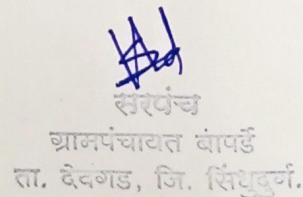 सरपंच
ग्रामपंचायत बांपर्डे
ता. देवगड, जि. सिंधुदुर्ग.